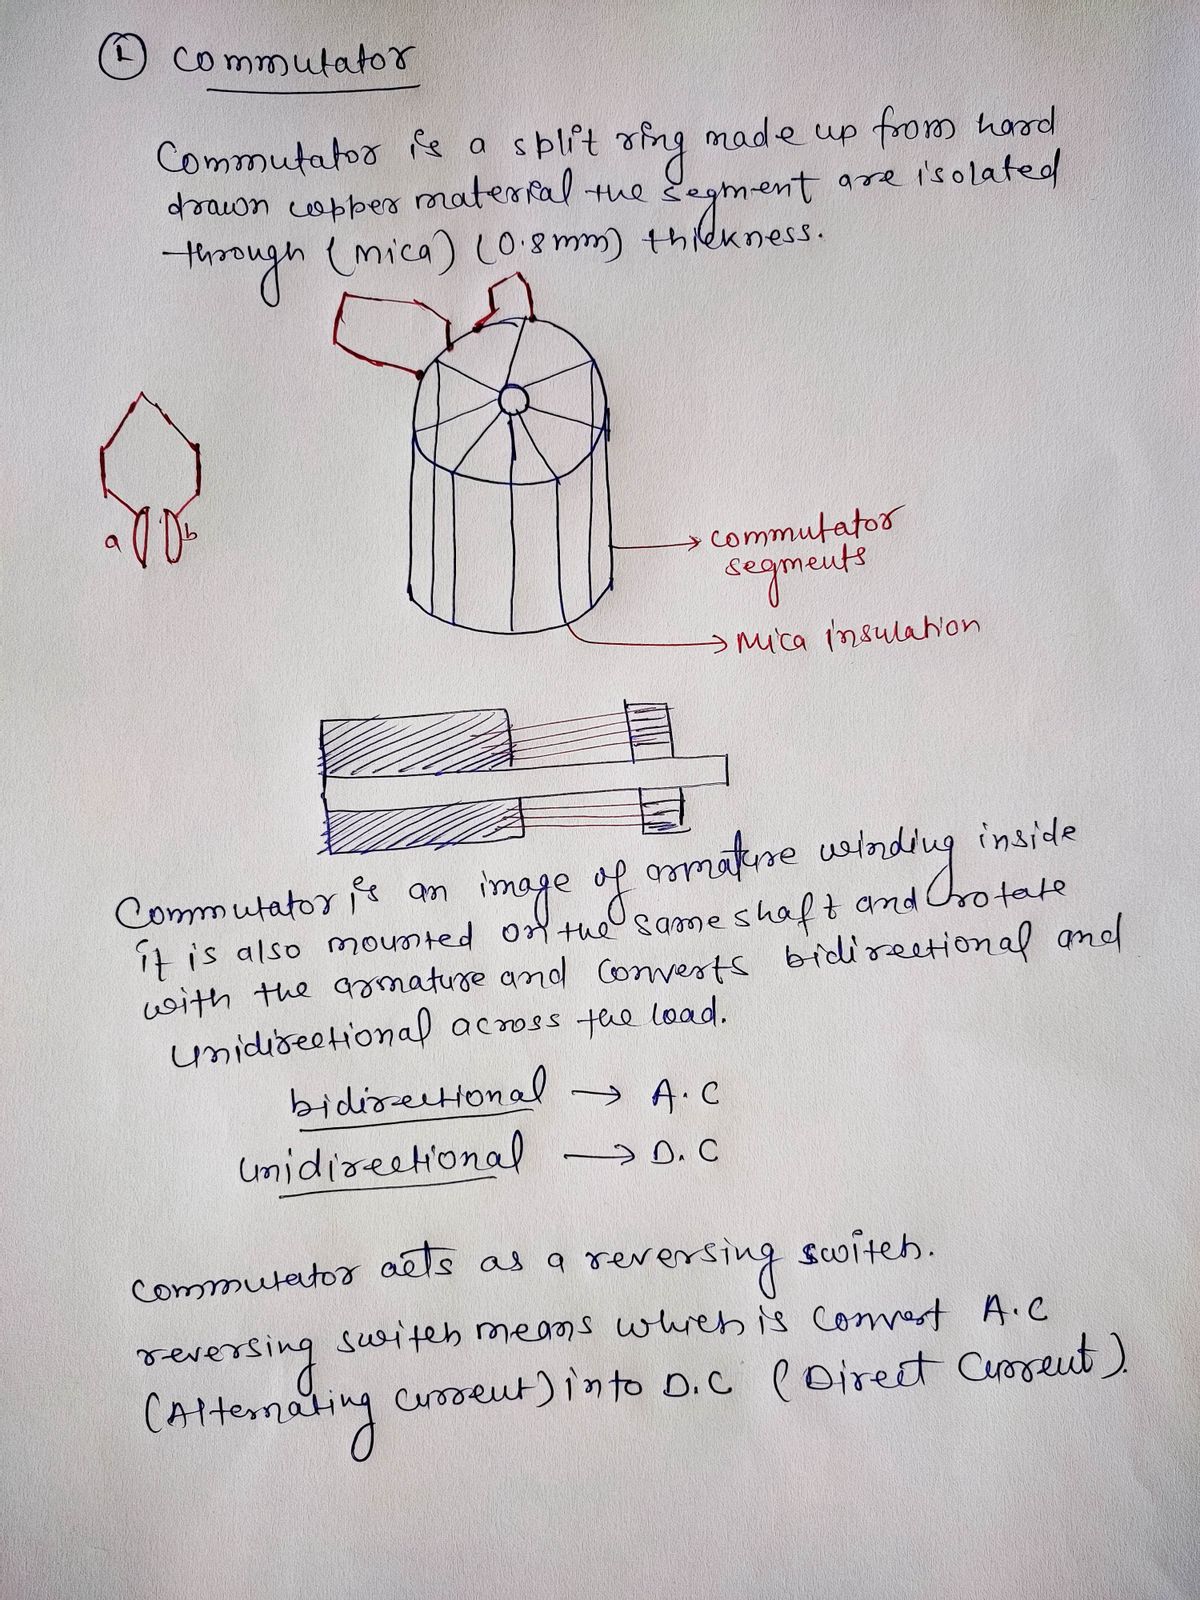 ① Commutator
Commutator is a split ring made up from hard
drawn copper material the segment are isolated
through (mica) (0.8mm) thickness.
a b
commutator
segments
Mica insulation
Commutator is an image of armature winding inside
it is also mounted on the same shaft and rotate
with the armature and Converts bidirectional and
Unidirectional across the load.
bidirectional → A.C
Unidirectional → D.C
Commutator acts as a reversing switch.
reversing switch means which is Convert A.C
(Alternating current) into D.C (Direct Current).